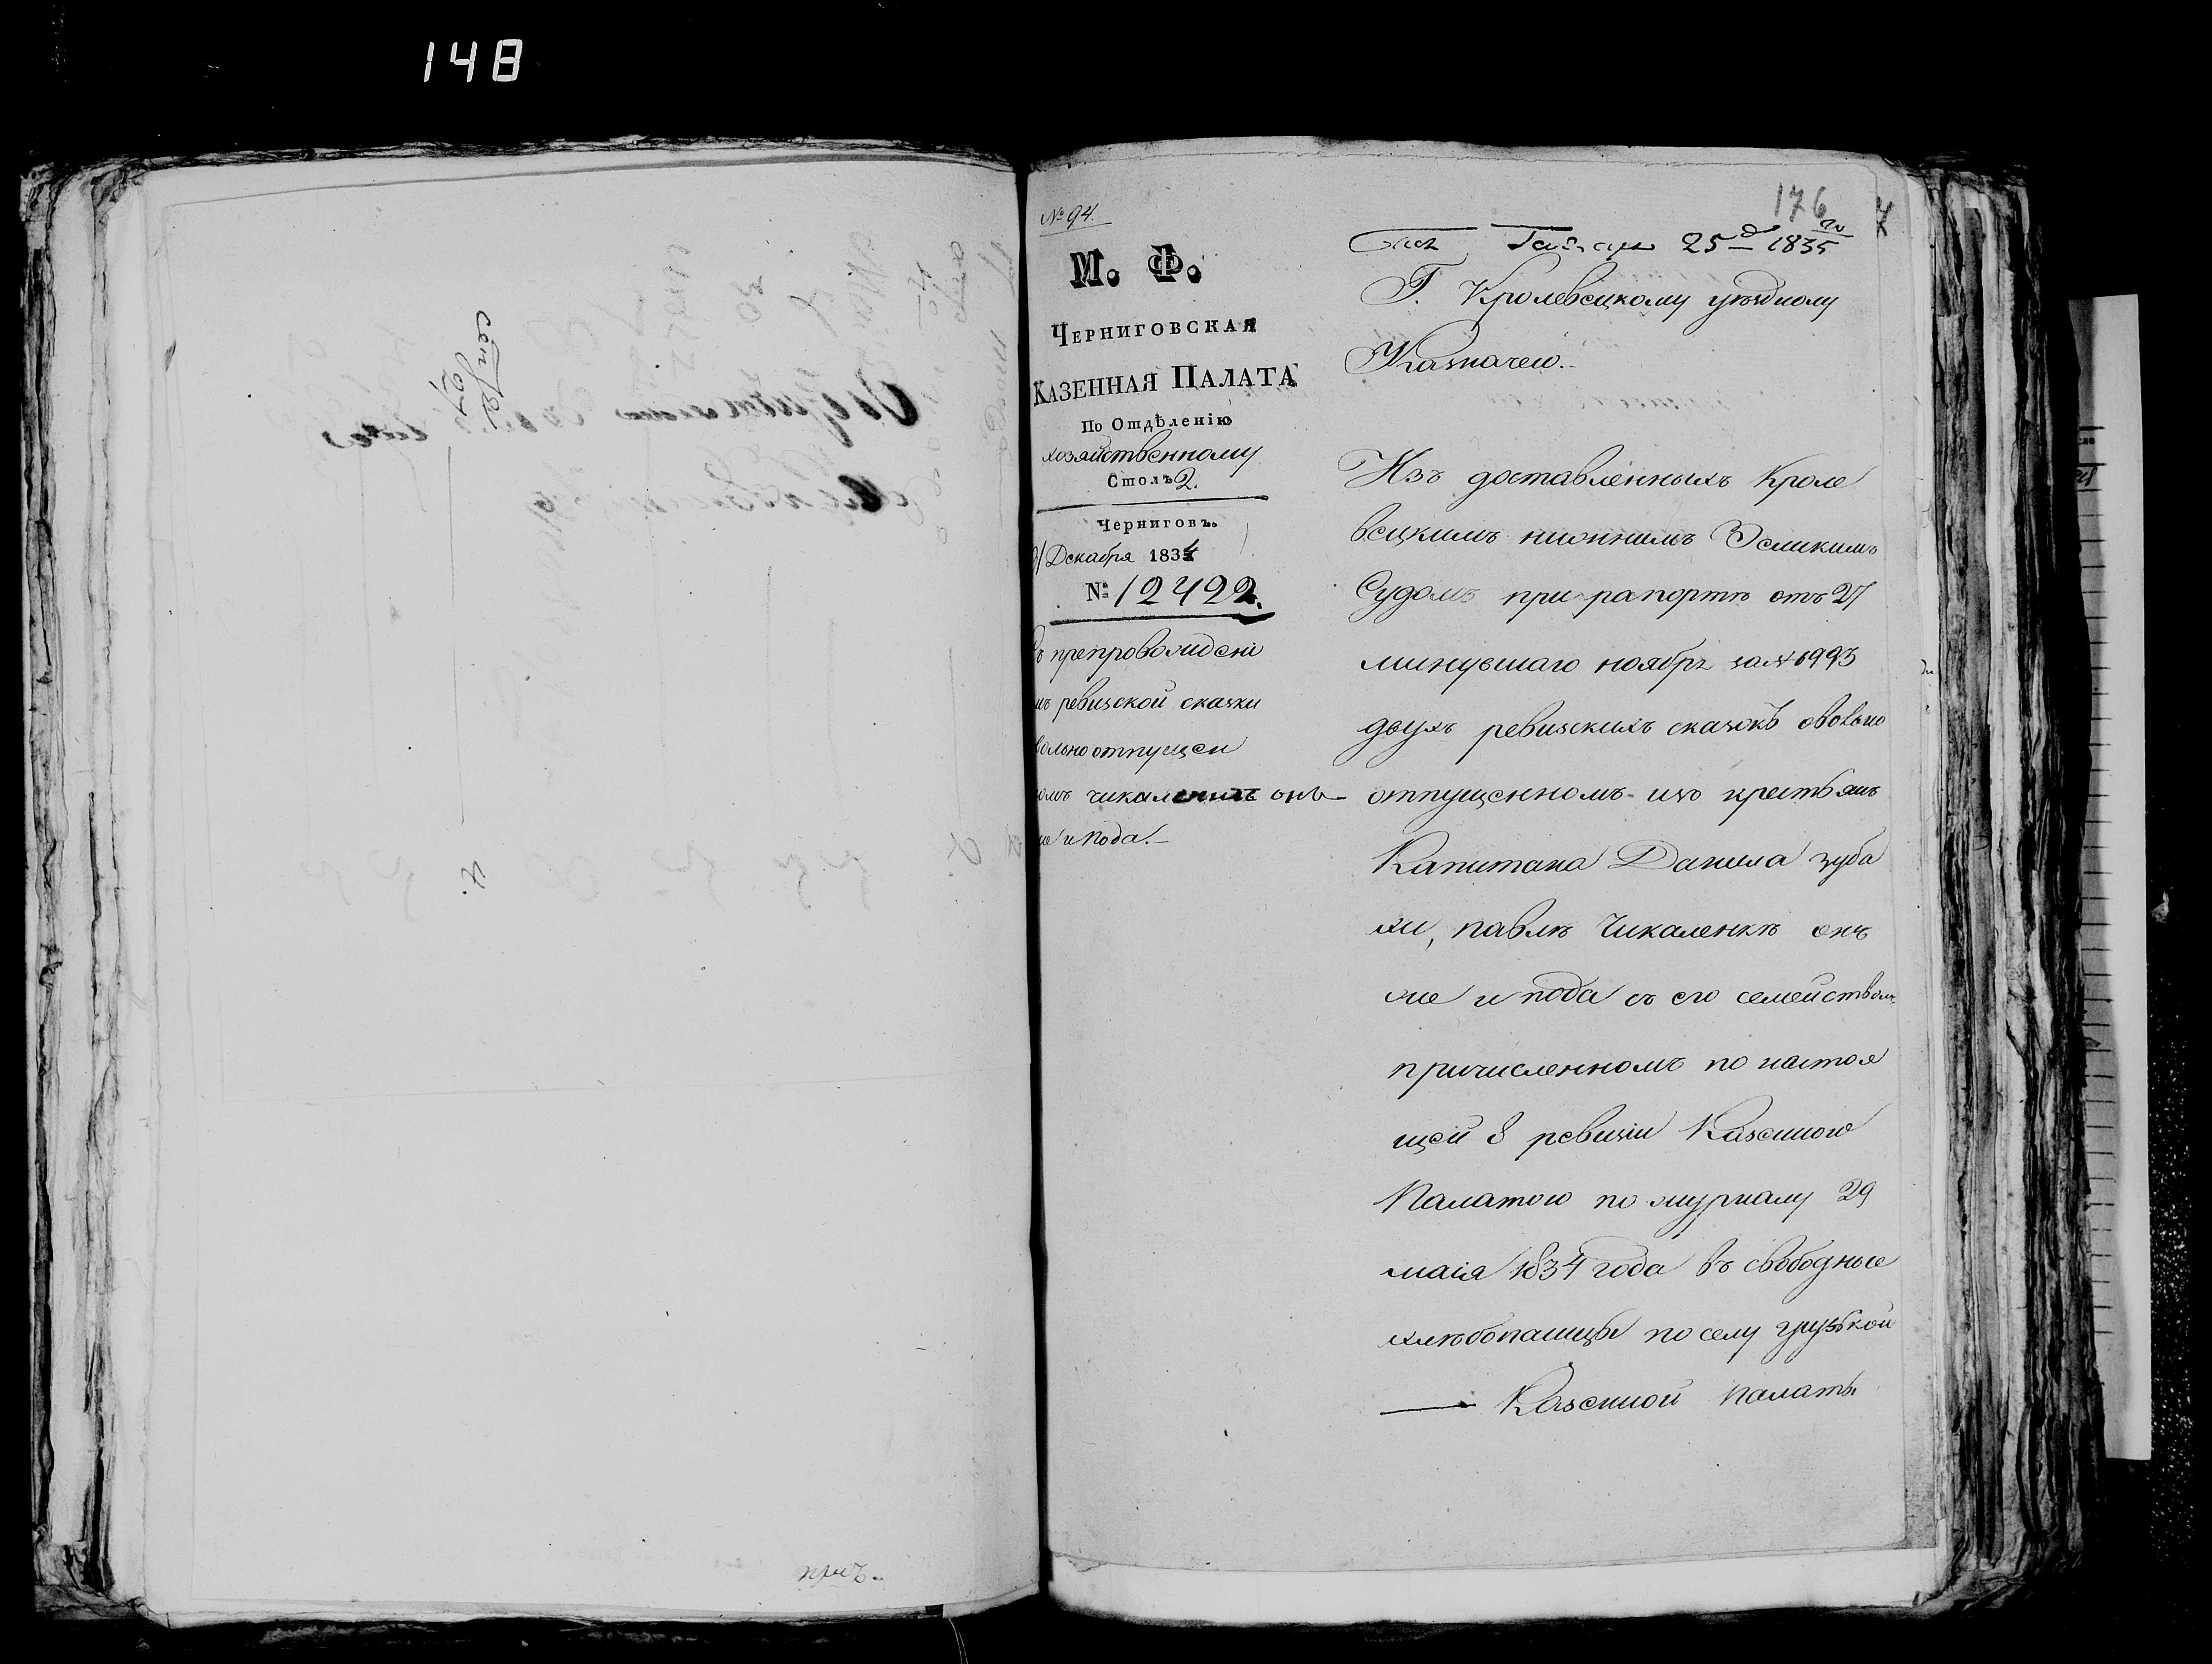 148
176
№ 94.
М. Ф.
Черниговская
Казенная Палата
По Отдѣленію
хозяйственному
Столъ 2.
Черниговъ.
Декабря 1834
№ 12422.
препровожденіи
ревизской сказки
вольно отпущен
омъ чикаленкѣ онъ
же и пода.
25 1835
Г. Кролевецкому уѣздному
Казначею.
Изъ доставленныхъ Кроле
вецкимъ нижнимъ Земскимъ
Судомъ при рапортѣ отъ 27
минувшаго ноября за № 6993
двухъ ревизскихъ сказокъ овольно
отпущенномъ изъ крестьянъ
Капитана Данила зуба
хи, павлѣ Чикаленкѣ онъ
же и пода съ его семействомъ
причисленномъ по настоя
щей 8 ревизіи Казенною
Палатою по журналу 29
маія 1834 года въ свободные
хлѣбопашцы по селу грузской
Казенной палаты